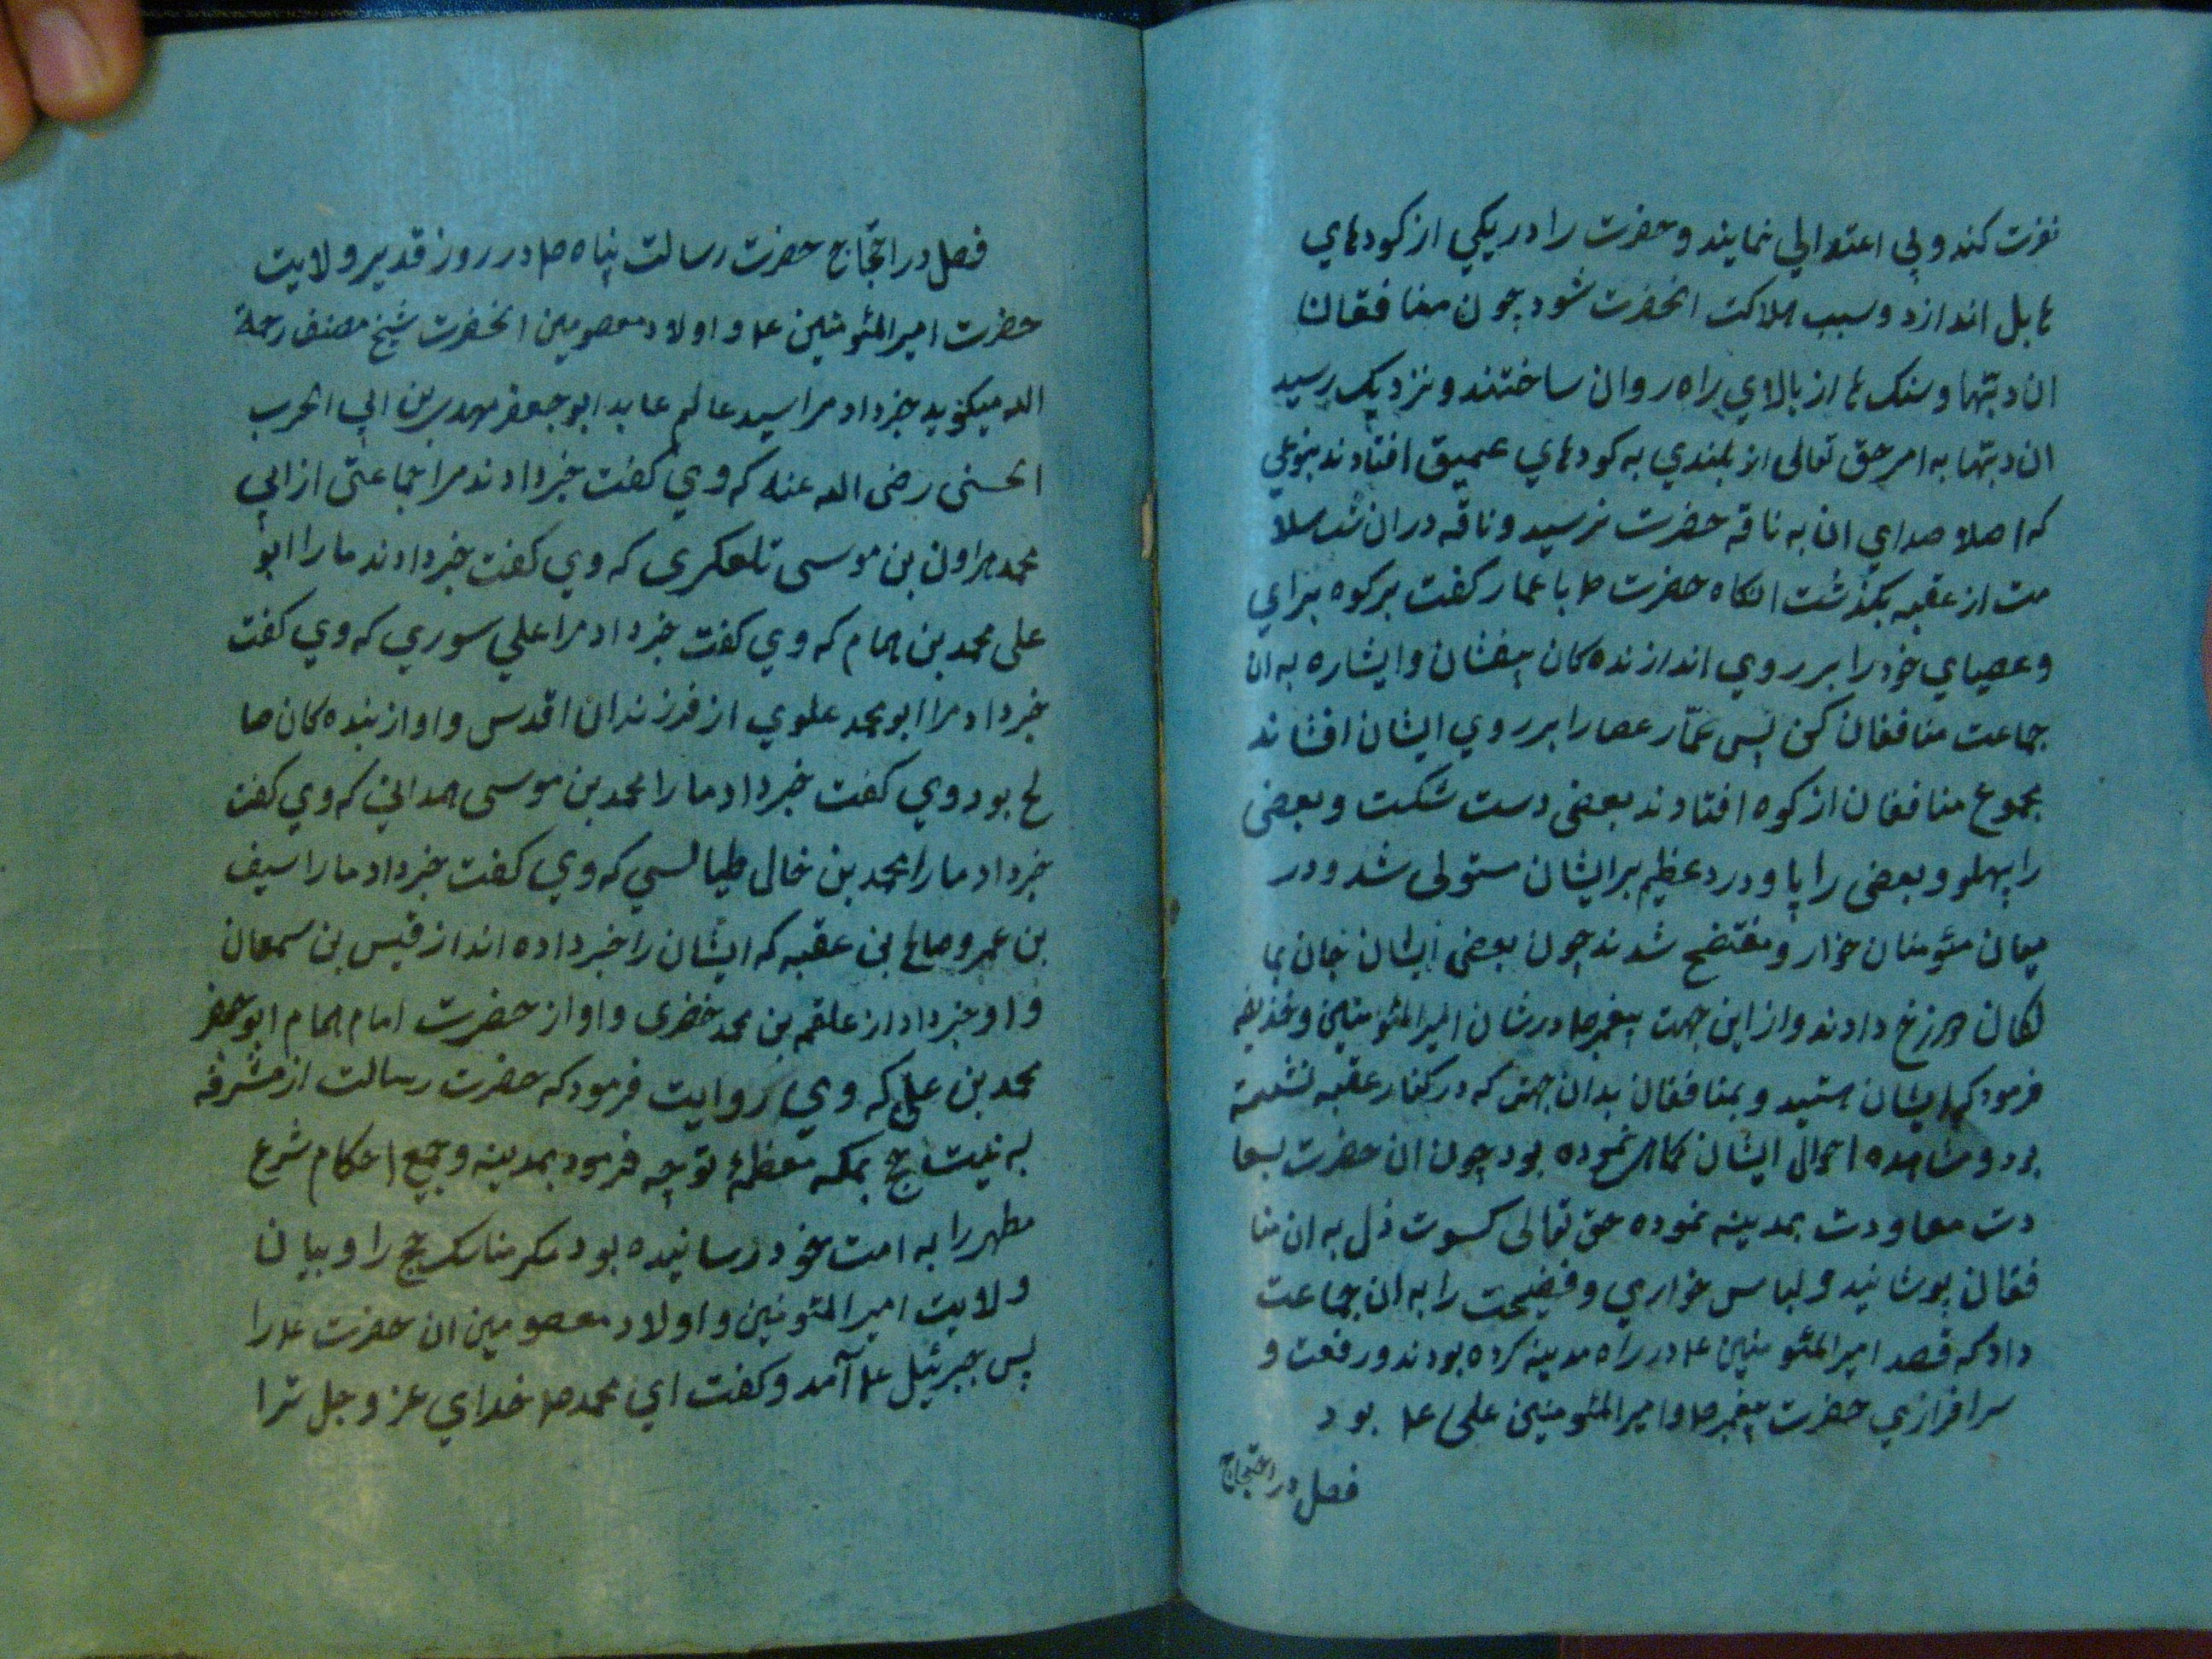 نفرت کند و بی اعتدالی نمایند و حضرت را در یکی از کودهای
هایل اندازد و سبب هلاکت انحضرت شود چون منافقان
ان دبّتها و سنک ها از بالاوی راه روان ساختند و نزدیک رسید
ان دبّتها به امر حق تعالی از بلندی به کودهای عمیق افتادند بنوعی
که اصلا صدای ان به ناقه حضرت نرسید و ناقه دران شب سلا
مت از عقبه بکذشت انکاه حضرت ص با عمار کفت بر کوه برای
و عصیای خود را بر روی اندازنده کان بیفشان و ایشاره به ان
جماعت منافقان کن پس عمّار عصا را بر روی ایشان افشاند
مجموع منافقان از کوه افتادند بعضی دست شکت و بعضی
را پهلو و بعضی را پا و درد عظیم بر ایشان مستولی شد و در
میان مئومنان خوار و مفتضح شدند چون بعضی ایشان خان بما
لکان دوزخ دادند و از این جهت پیغمبر ص در شان امیر المئومنین و حذیفه
فرمود که ایشان و بمنافقان بدان جهتی که در کنار عقبه نشسته
بود و مشاهده احوال ایشان نموده بود چون ان حضرت بسعا
دت معاودت بمدینه نموده حق تعالی کسوت ذل به ان منا
فقان پوشانید و لباس خواری و فضیحت را به ان جماعت
داد که قصد امیر المئومنین ع در راه مدینه کرده بودند و رفعت و
سرافرازی حضرت پیغمبر ص و امیر المئومنین علی ع بود
فصل در احتجاج
فصل در احتجاج حضرت رسالت پناه ص در روز قدیر و لایت
حضرت امیر المئومنین ع و اولاد معصومین انحضرت شیخ مصنف رحمة
الله میکوید خبر داد مرا سید عالم عابد ابو جعفر مهدی بن ابی الحرب
الحسنی رضی الله عنه که وی کفت خبر دادند مرا جماعتی از ابی
محمد هراون بن موسی تلعکری که وی کفت خبر دادند ما را ابو
علی محمد بن همام که وی کفت خبر داد مرا علی سوری که وی کفت
خبر داد مرا ابو محمد علوی از فرزندان اقدس و او از بنده کان صا
لح بود وی کفت خبر داد ما را محمد بن موسی همدانی که وی کفت
خبر داد ما را محمد بن خالی طیالسی که وی کفت خبر داد ما را سیف
بن عمر و صالح بن عقبه که ایشان را خبر داده اند از قیس بن سمعان
و او خبر داد از علقمه بن محمد خضری و او از حضرت امام همام ابو جعفر
محمد بن علی که وی روایت فرمود که حضرت رسالت از مشرفه
به نیت حج بمکه معظمهٔ توجه فرمود بمدینه و جمیع احکام شرع
مطهر را به امت خود رسانیده بود مکر مناسک حج را و بیان
ولایت امیر المئومنین و اولاد معصومین ان حضرت ع را
پس جبرئیل ع آمد و کفت ای محمد ص خدای عز و جل ترا